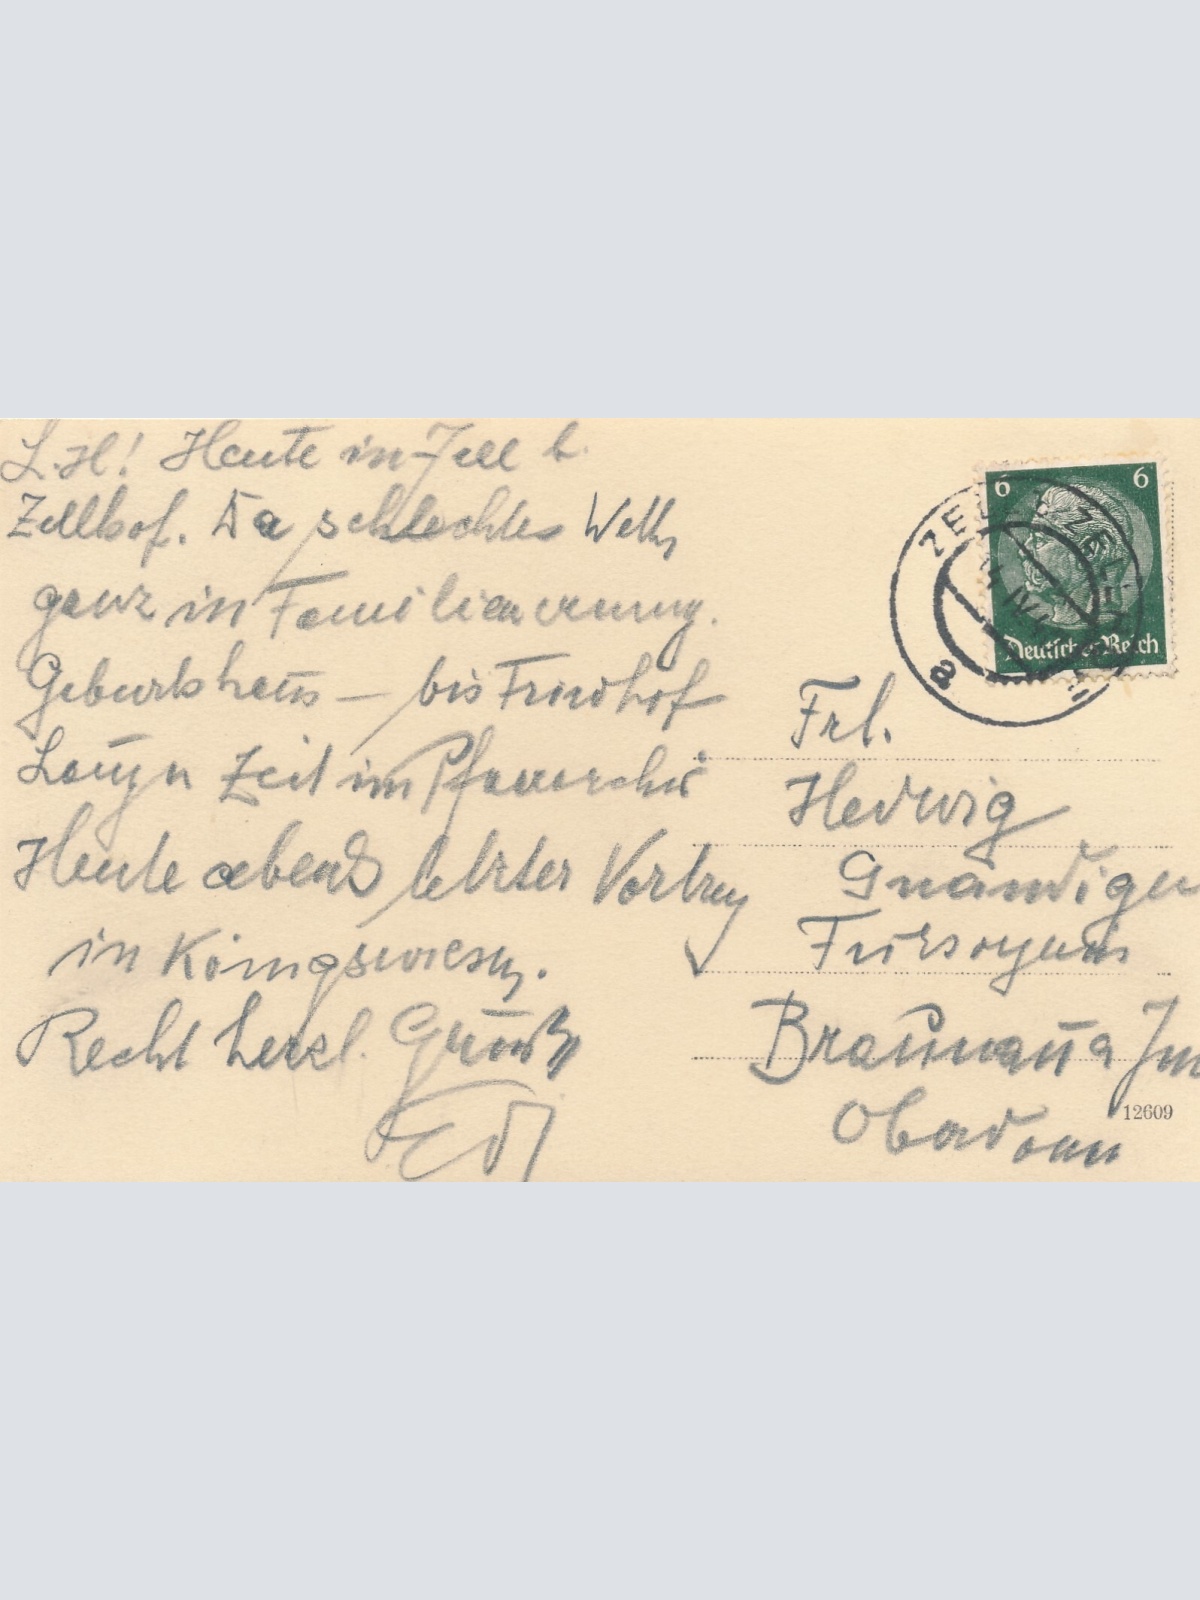 L. H! Heute in Zell b.
Zellhof. Da schlechtes Wett
ganz in Familien
Geburtshaus — bis Friedhof
Lange Zeit im Pfarrarchiv
Heute abend letzter Vortrag
in Königswiesen.
Recht herzl. Grüße
Edi
6 6
Deutsches Reich
ZELL B ZELL
a
Frl.
Hedwig
Gnändiger
Fürsorgerin
Braunau a Inn
12609
Oberdonau